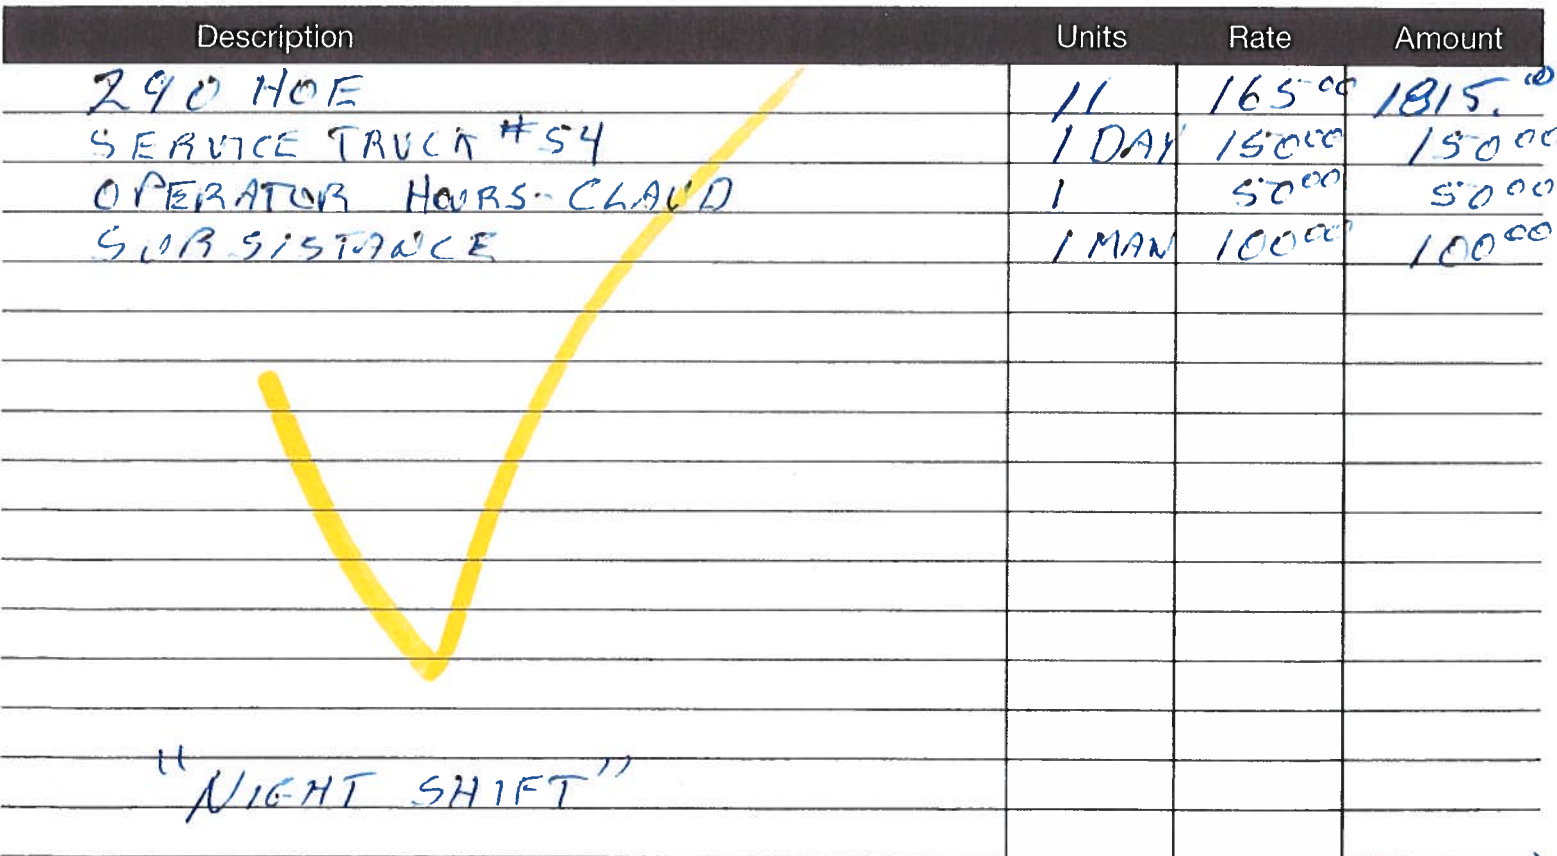 Description Units Rate Amount
290 HOE 11 165 00 1815. 00
SERVICE TRUCK #54 1 DAY 150 00 150 00
OPERATOR HOURS - CLAUD 1 50 00 50 00
SUBSISTANCE 1 MAN 100 00 100 00
"NIGHT SHIFT"